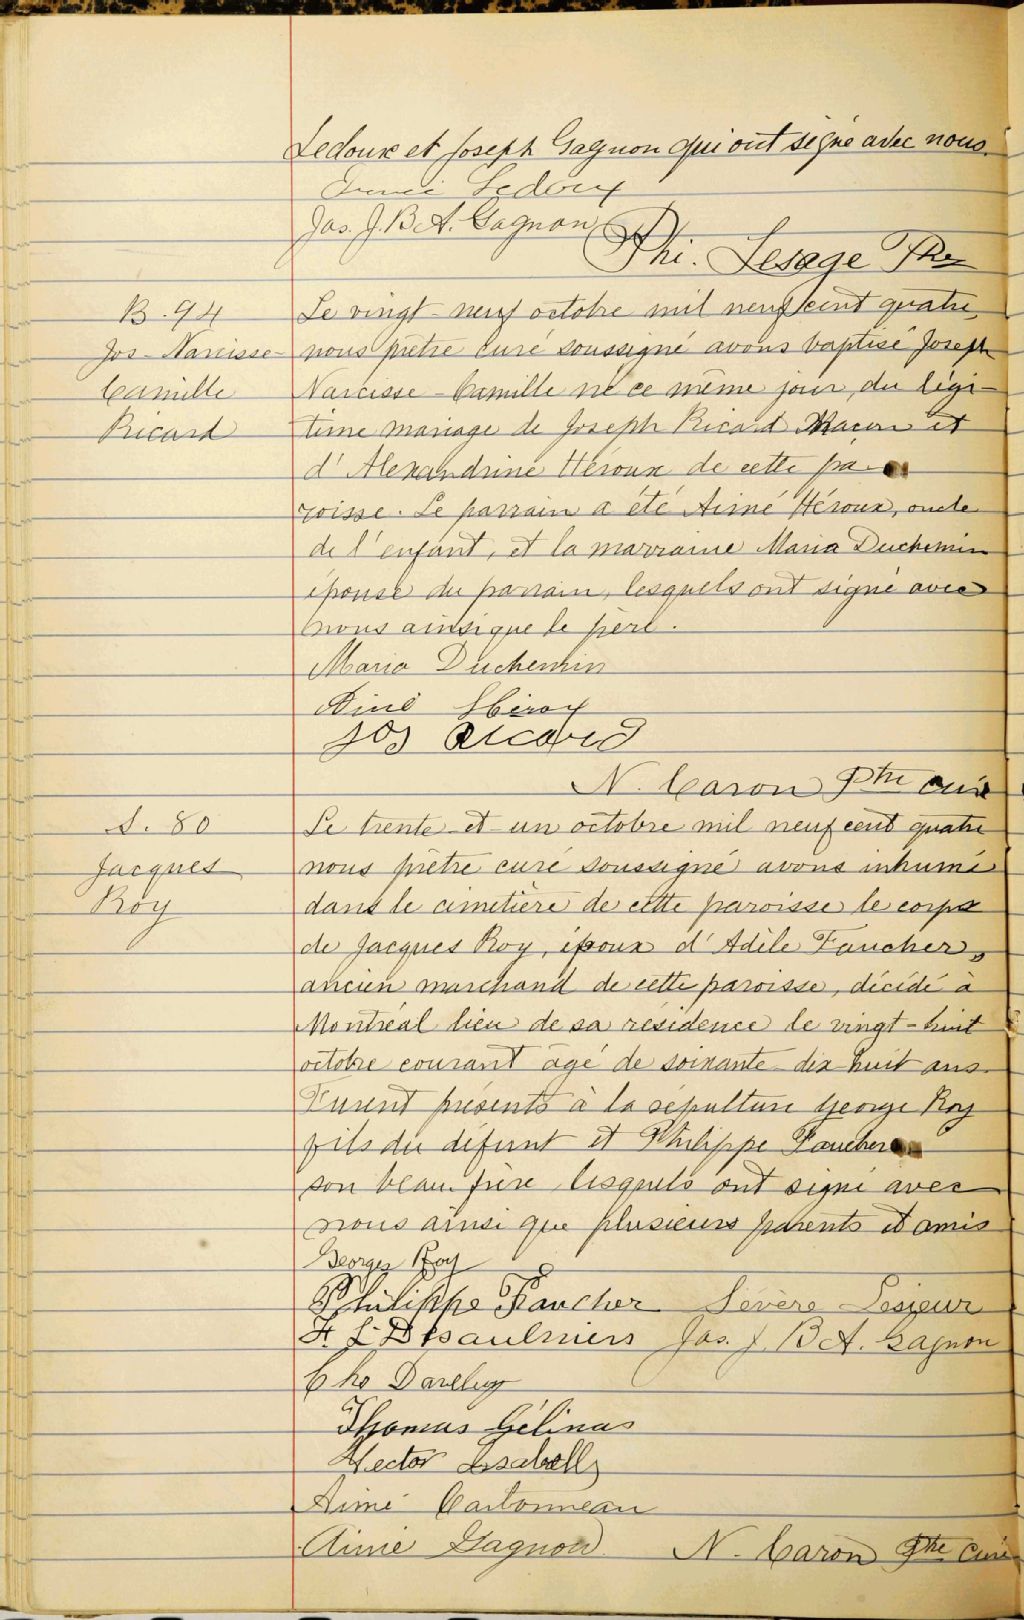 Ledoux et Joseph Gagnon qui ont signé avec nous.
Ledoux
Jos. J. B A. Gagnon
Phi. Lesage Ptre
B. 94
Jos - Narcisse -
Camille
Ricard
Le vingt - neuf octobre mil neuf cent quatre,
nous prêtre curé soussigné avons baptisé Joseph
Narcisse - Camille né ce même jour, du légi-
time mariage de Joseph Ricard Maçon et
d'Alexandrine Héroux de cette pa
roisse. Le parrain a été Aimé Héroux, oncle
de l'enfant, et la marraine Maria Duchemin
épouse du parrain, lesquels ont signé avec
nous ainsi que le père.
Maria Duchemin
Aimé Héroux
Jos Ricard
N. Caron Ptre curé
S. 80
Jacques
Roy
Le trente - et - un octobre mil neuf cent quatre
nous prêtre curé soussigné avons inhumé
dans le cimetière de cette paroisse le corps
de Jacques Roy, époux d'Adèle Faucher,
ancien marchand de cette paroisse, décédé à
Montréal lieu de sa résidence le vingt - huit
octobre courant âgé de soixante - dix - huit ans.
Furent présents à la sépulture George Roy
fils du défunt et Philippe Faucher
son beau-frère lesquels ont signé avec
nous ainsi que plusieurs parents et amis
Georges Roy
Philippe Faucher Sévère Lesieur
F. L. Desaulniers Jos. J. B A. Gagnon
Cho Daveluy
Thomas Gélinas
Hector Lisabelle
Aimé Carbonneau
Aimé Gagnon N. Caron Ptre Curé